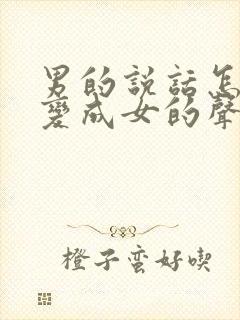 男的説話怎
變成女的聲
橙子蛮好喫